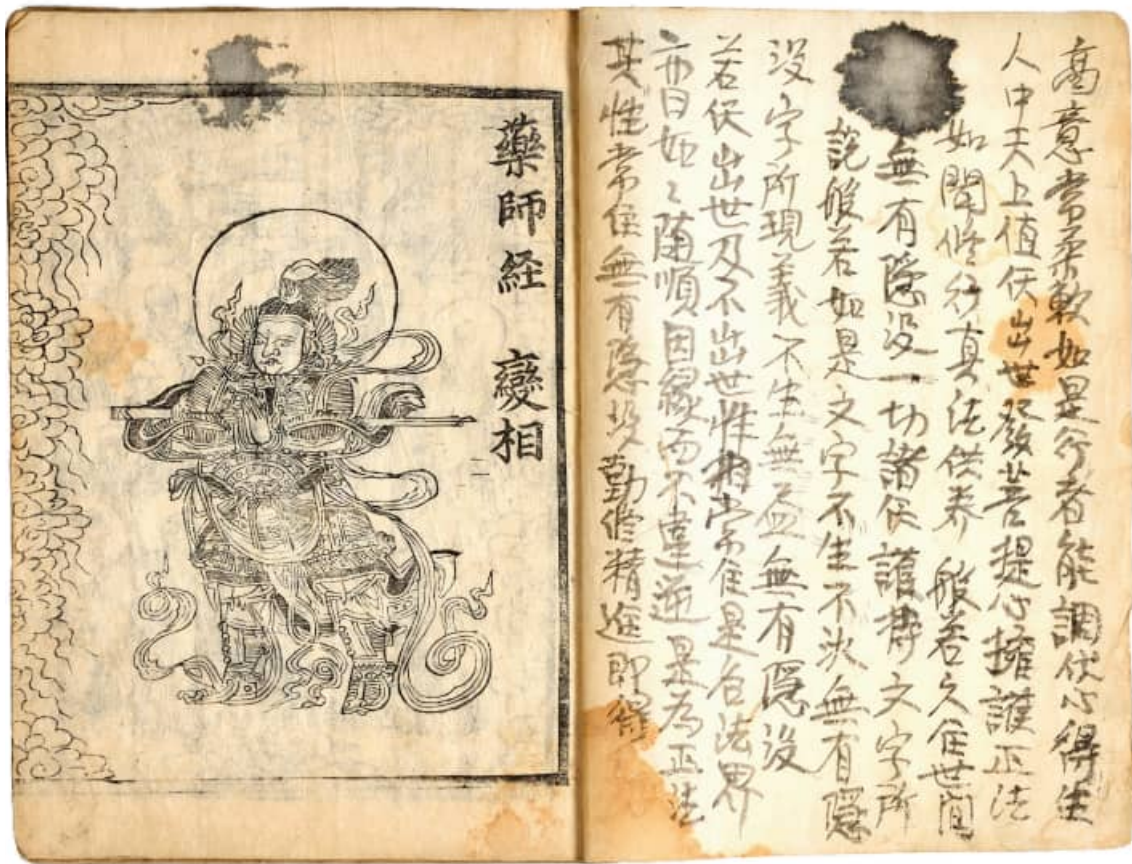 高意常柔軟如是行者能調伏心得生
人中天上值仸出世發菩提心擁護正法
如聞修行真法供养般若久住世間
無有隱没一切諸仸護持文字所
說般若如是文字不生不灭無有隱
没字所現義不生無無有隱没
若仸出世及不出世性相常住是名法界
亦曰如〻隨順因緣而不違逆是為正法
其性常住無有隱没勤修精進即得
藥師経 變相